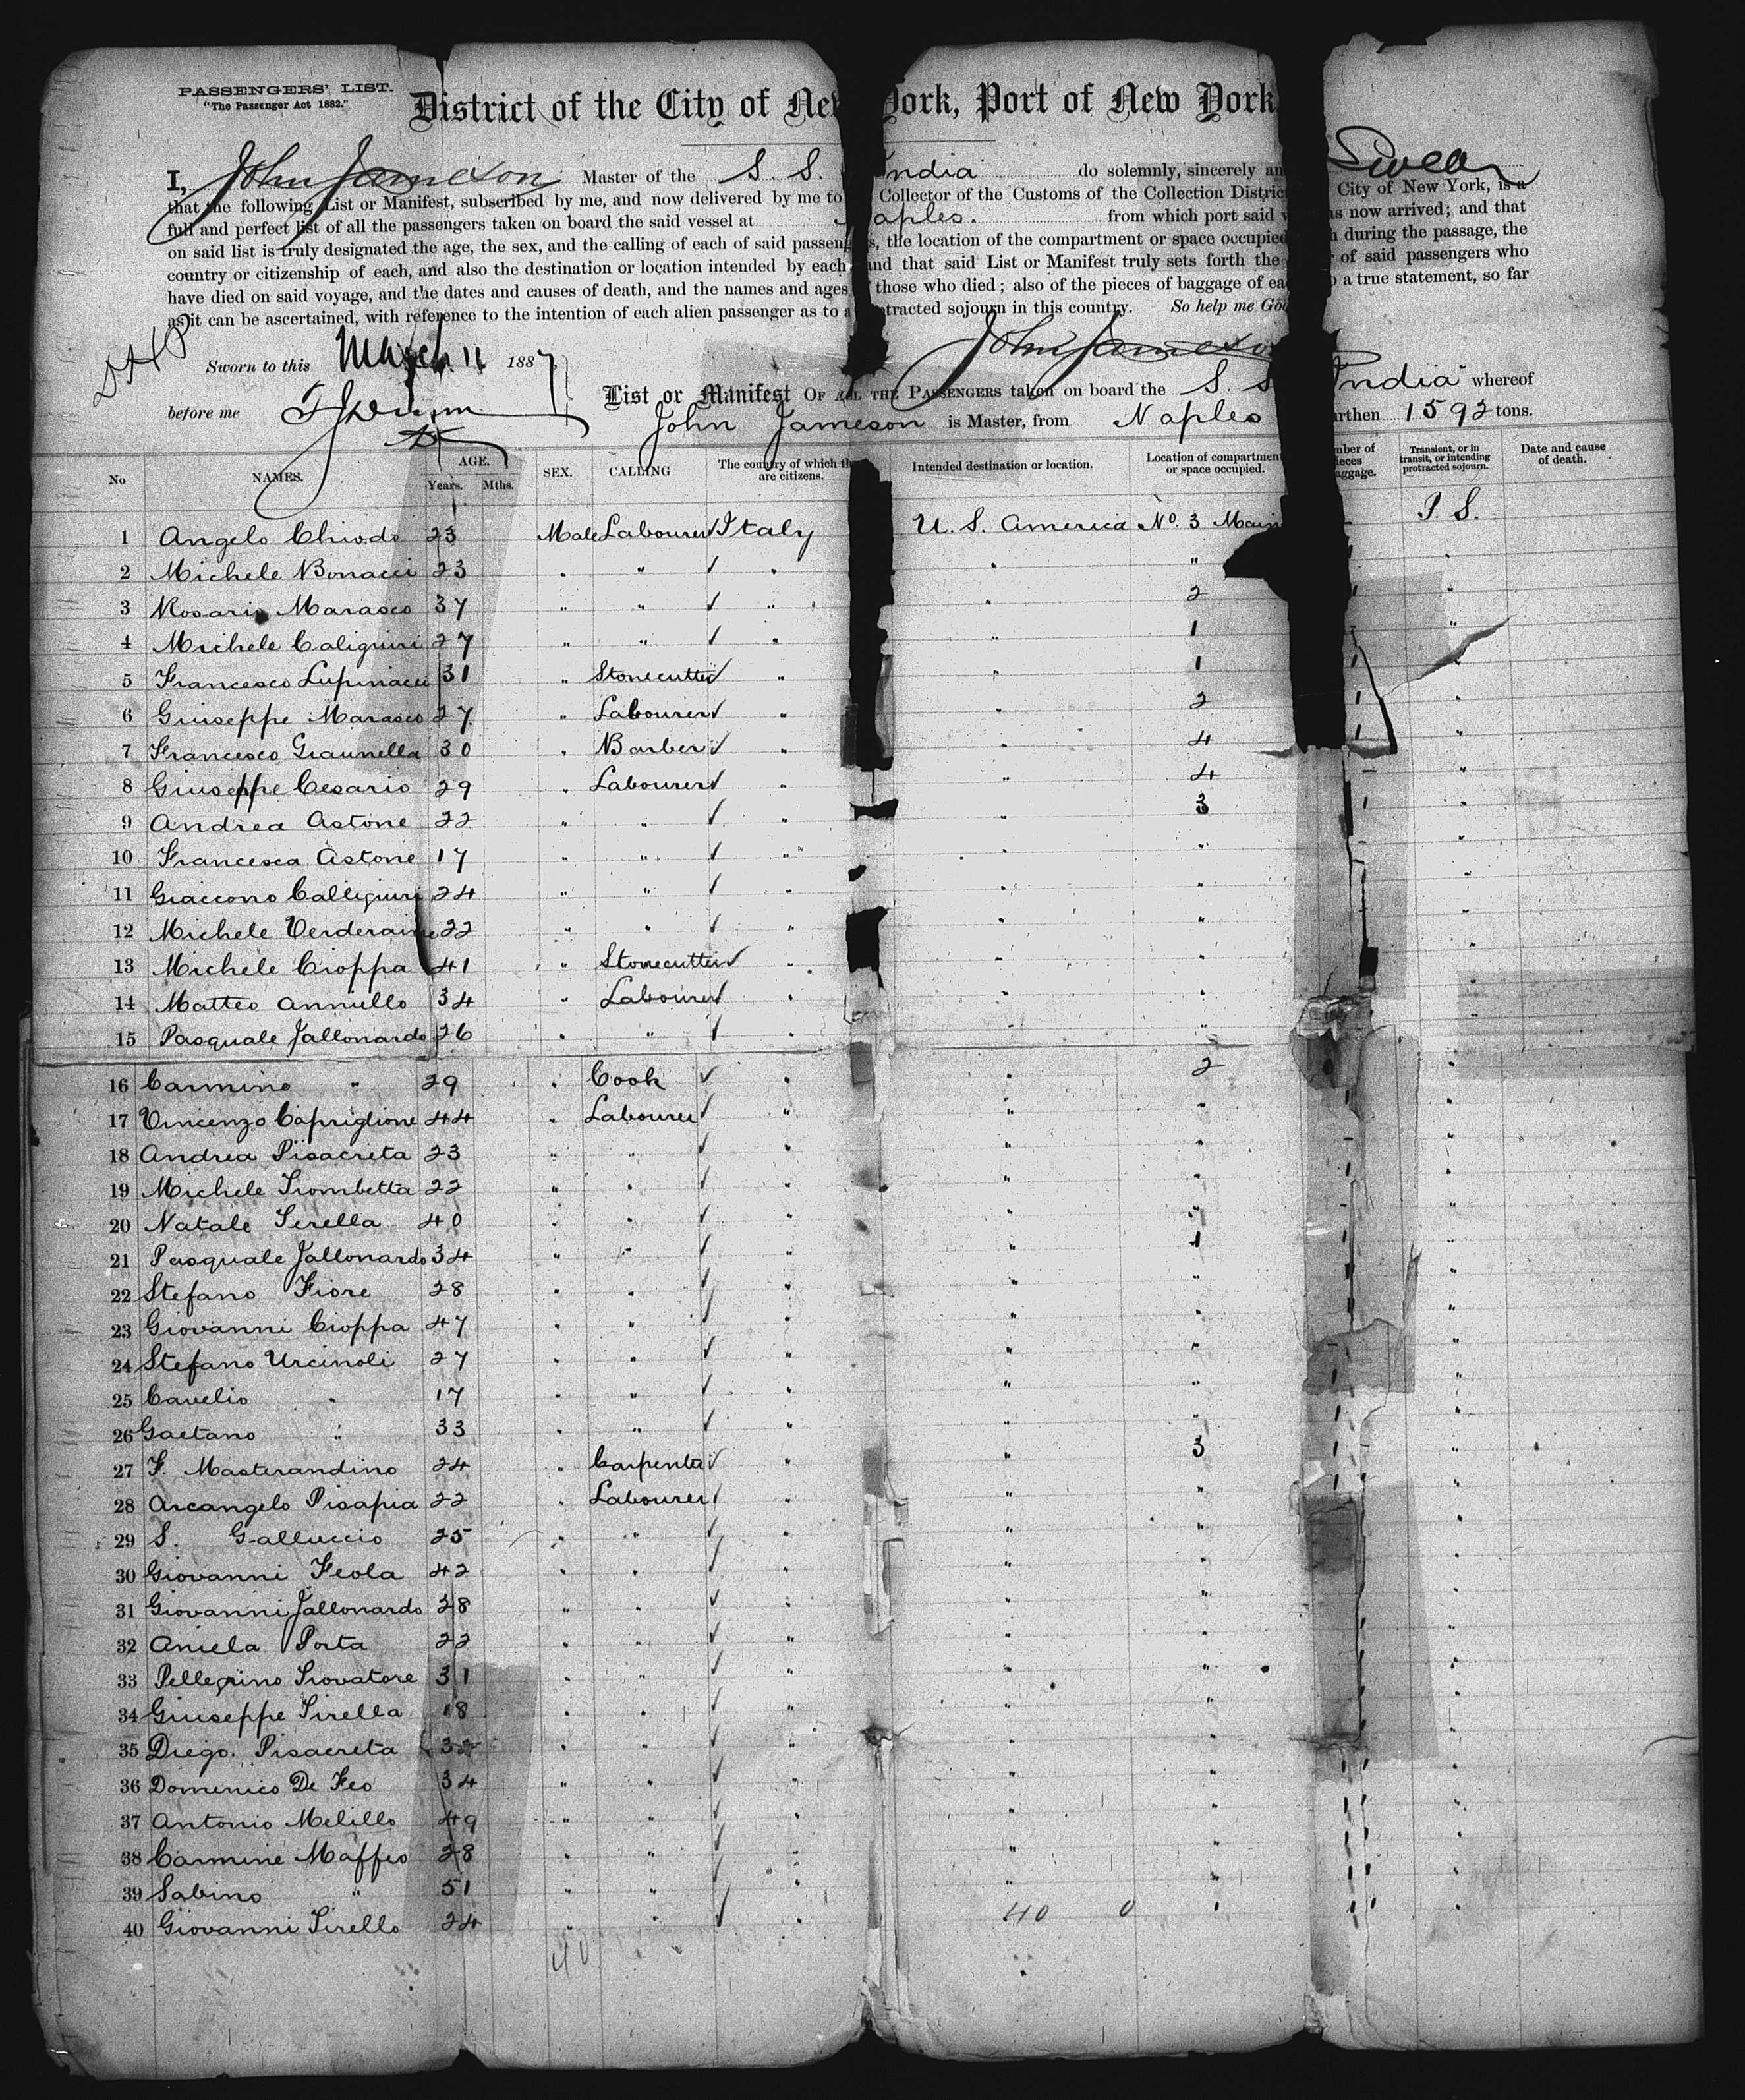 PASSENGERS' LIST.
"The Passenger Act 1882."
District of the City of New York, Port of New York
I, John Jameson Master of the S. S. India do solemnly, sincerely and Swear
that the following List or Manifest, subscribed by me, and now delivered by me to Collector of the Customs of the Collection District City of New York, is a
full and perfect list of all the passengers taken on board the said vessel at Naples. from which port said as now arrived; and that
on said list is truly designated the age, the sex, and the calling of each of said passengers, the location of the compartment or space occupied during the passage, the
country or citizenship of each, and also the destination or location intended by each and that said List or Manifest truly sets forth the of said passengers who
have died on said voyage, and the dates and causes of death, and the names and ages those who died; also of the pieces of baggage of ea a true statement, so far
as it can be ascertained, with reference to the intention of each alien passenger as to a protracted sojourn in this country. So help me God
John Jameson
Sworn to this March 11 1887,
before me
List or Manifest OF ALL THE PASSENGERS taken on board the S. S. India whereof
John Jameson is Master, from Naples burthen 1592 tons.
No NAMES. AGE. Years. Mths. SEX. CALLING The country of which they are citizens. Intended destination or location. Location of compartment or space occupied. Number of pieces baggage. Transient, or in transit, or intending protracted sojourn. Date and cause of death.
1 Angelo Chiodo 23 Male Labourer Italy U. S. America No. 3 Main P. S.
2 Michele Bonacci 23 " " " " " "
3 Rosario Marasco 37 " " " " 2 1 "
4 Michele Caligiuri 27 " " " " 1 "
5 Francesco Lupinacci 31 " Stonecutter " " 1 1 "
6 Giuseppe Marasco 27 " Labourer " " 2 1 "
7 Francesco Giaunella 30 " Barber " " 4 1 "
8 Giuseppe Cesario 29 " Labourer " " 4 - "
9 Andrea Astone 22 " " " " 3 1 "
10 Francesca Astone 17 " " " " " - "
11 Giaccono Calligiuri 24 " " " " " "
12 Michele Verderaine 22 " " " " " "
13 Michele Cioppa 41 " Stonecutter " " " "
14 Matteo Anniello 34 " Labourer " " " "
15 Pasquale Jallonardo 26 " " " " " "
16 Carmino " 29 " Cook " " 2 "
17 Vincenzo Capriglione 44 " Labourer " " " 1 "
18 Andrea Pisacreta 23 " " " " " - "
19 Michele Trombetta 22 " " " " " 1 "
20 Natale Serella 40 " " " " " - "
21 Pasquale Jallonardo 34 " " " " 1 1 "
22 Stefano Fiore 28 " " " " " 1 "
23 Giovanni Cioppa 47 " " " " " 1 "
24 Stefano Urcinoli 27 " " " " " - "
25 Cavelio " 17 " " " " " 1 "
26 Gaetano " 33 " " " " " 1 "
27 F. Masterandino 24 " Carpenter " " 3 1 "
28 Arcangelo Pisapia 22 " Labourer " " " 1 "
29 S. Galluccio 25 " " " " " "
30 Giovanni Feola 42 " " " " " "
31 Giovanni Jallonardo 28 " " " " " "
32 Aniela Porta 22 " " " " " "
33 Pellegrino Trovatore 31 " " " " " "
34 Giuseppe Tirella 18 " " " " " "
35 Diego. Pisacreta " " " " " "
36 Domenico De Feo 34 " " " " " 1 "
37 Antonio Melillo 49 " " " " " 1 "
38 Carmine Maffeo 28 " " " " " 1 "
39 Sabino " 51 " " " " " 1 "
40 Giovanni Tirello 24 " " " 40 0 " 1 "
40